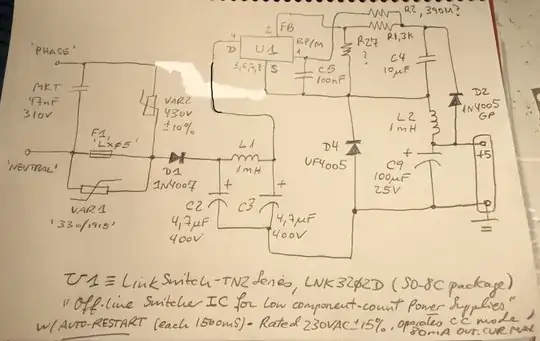 4
D
U1
2
FB
RP/M
1
5,6,7,8
S
C5
100nF
R2, 390Ω?
R1, 3K
R27
?
C4
10µF
'PHASE'
MKT
47nF
310V
VAR2
430V
±10%
D2
1N4005
GP
L2
1mH
F1,
'LXØ5'
'NEUTRAL'
D1
1N4007
L1
1mH
D4
UF4005
C9
100µF
25V
+5
VAR1
'330/1915'
C2
4,7µF
400V
C3
4,7µF
400V
U1 ≡ LinkSwitch-TN2 Series, LNK32Ø2D (SO-8C package)
"Off-line Switcher IC for Low component-count Power Supplies"
W/ AUTO-RESTART (each 1500mS) - Rated 230VAC ±15%, operates CC mode,
80mA OUT. CUR. MAX